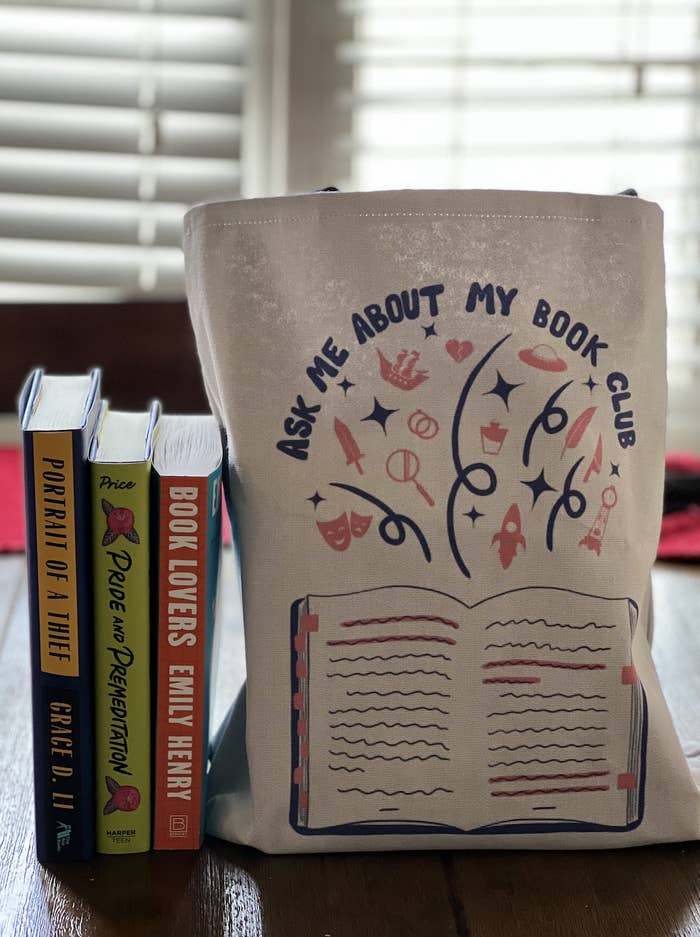 ASK ME ABOUT MY BOOK CLUB
PORTRAIT OF A THIEF
GRACE D. LI
Price
PRIDE AND PREMEDITATION
HARPER
TEEN
BOOK LOVERS
EMILY HENRY